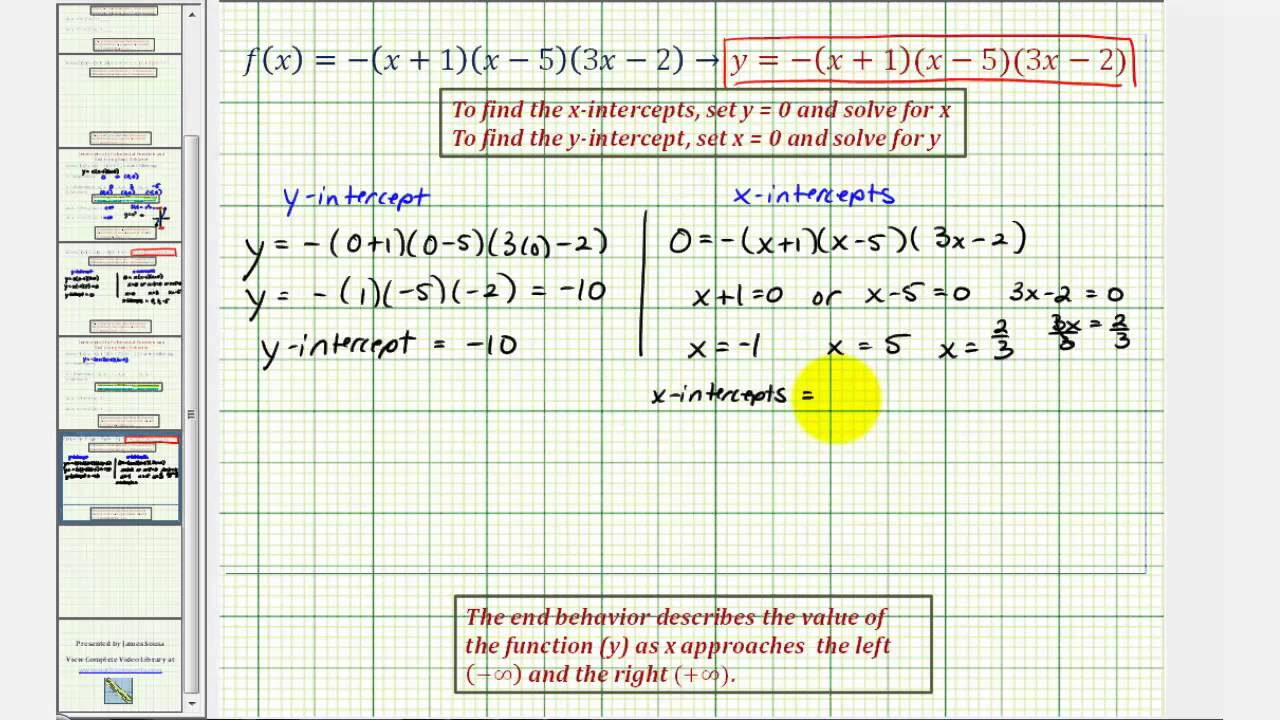 f(x) = −(x + 1)(x − 5)(3x − 2) → y = −(x + 1)(x − 5)(3x − 2)
To find the x-intercepts, set y = 0 and solve for x
To find the y-intercept, set x = 0 and solve for y
y-intercept
y = -(0+1)(0-5)(3(0)-2)
y = -(1)(-5)(-2) = -10
y-intercept = -10
x-intercepts
0 = -(x+1)(x-5)(3x-2)
x+1=0 or x-5=0 3x-2=0
x = -1 x = 5 x = 2/3 3x/3 = 2/3
x-intercepts =
The end behavior describes the value of
the function (y) as x approaches the left
(−∞) and the right (+∞).
Presented by James Sousa
View Complete Video Library at